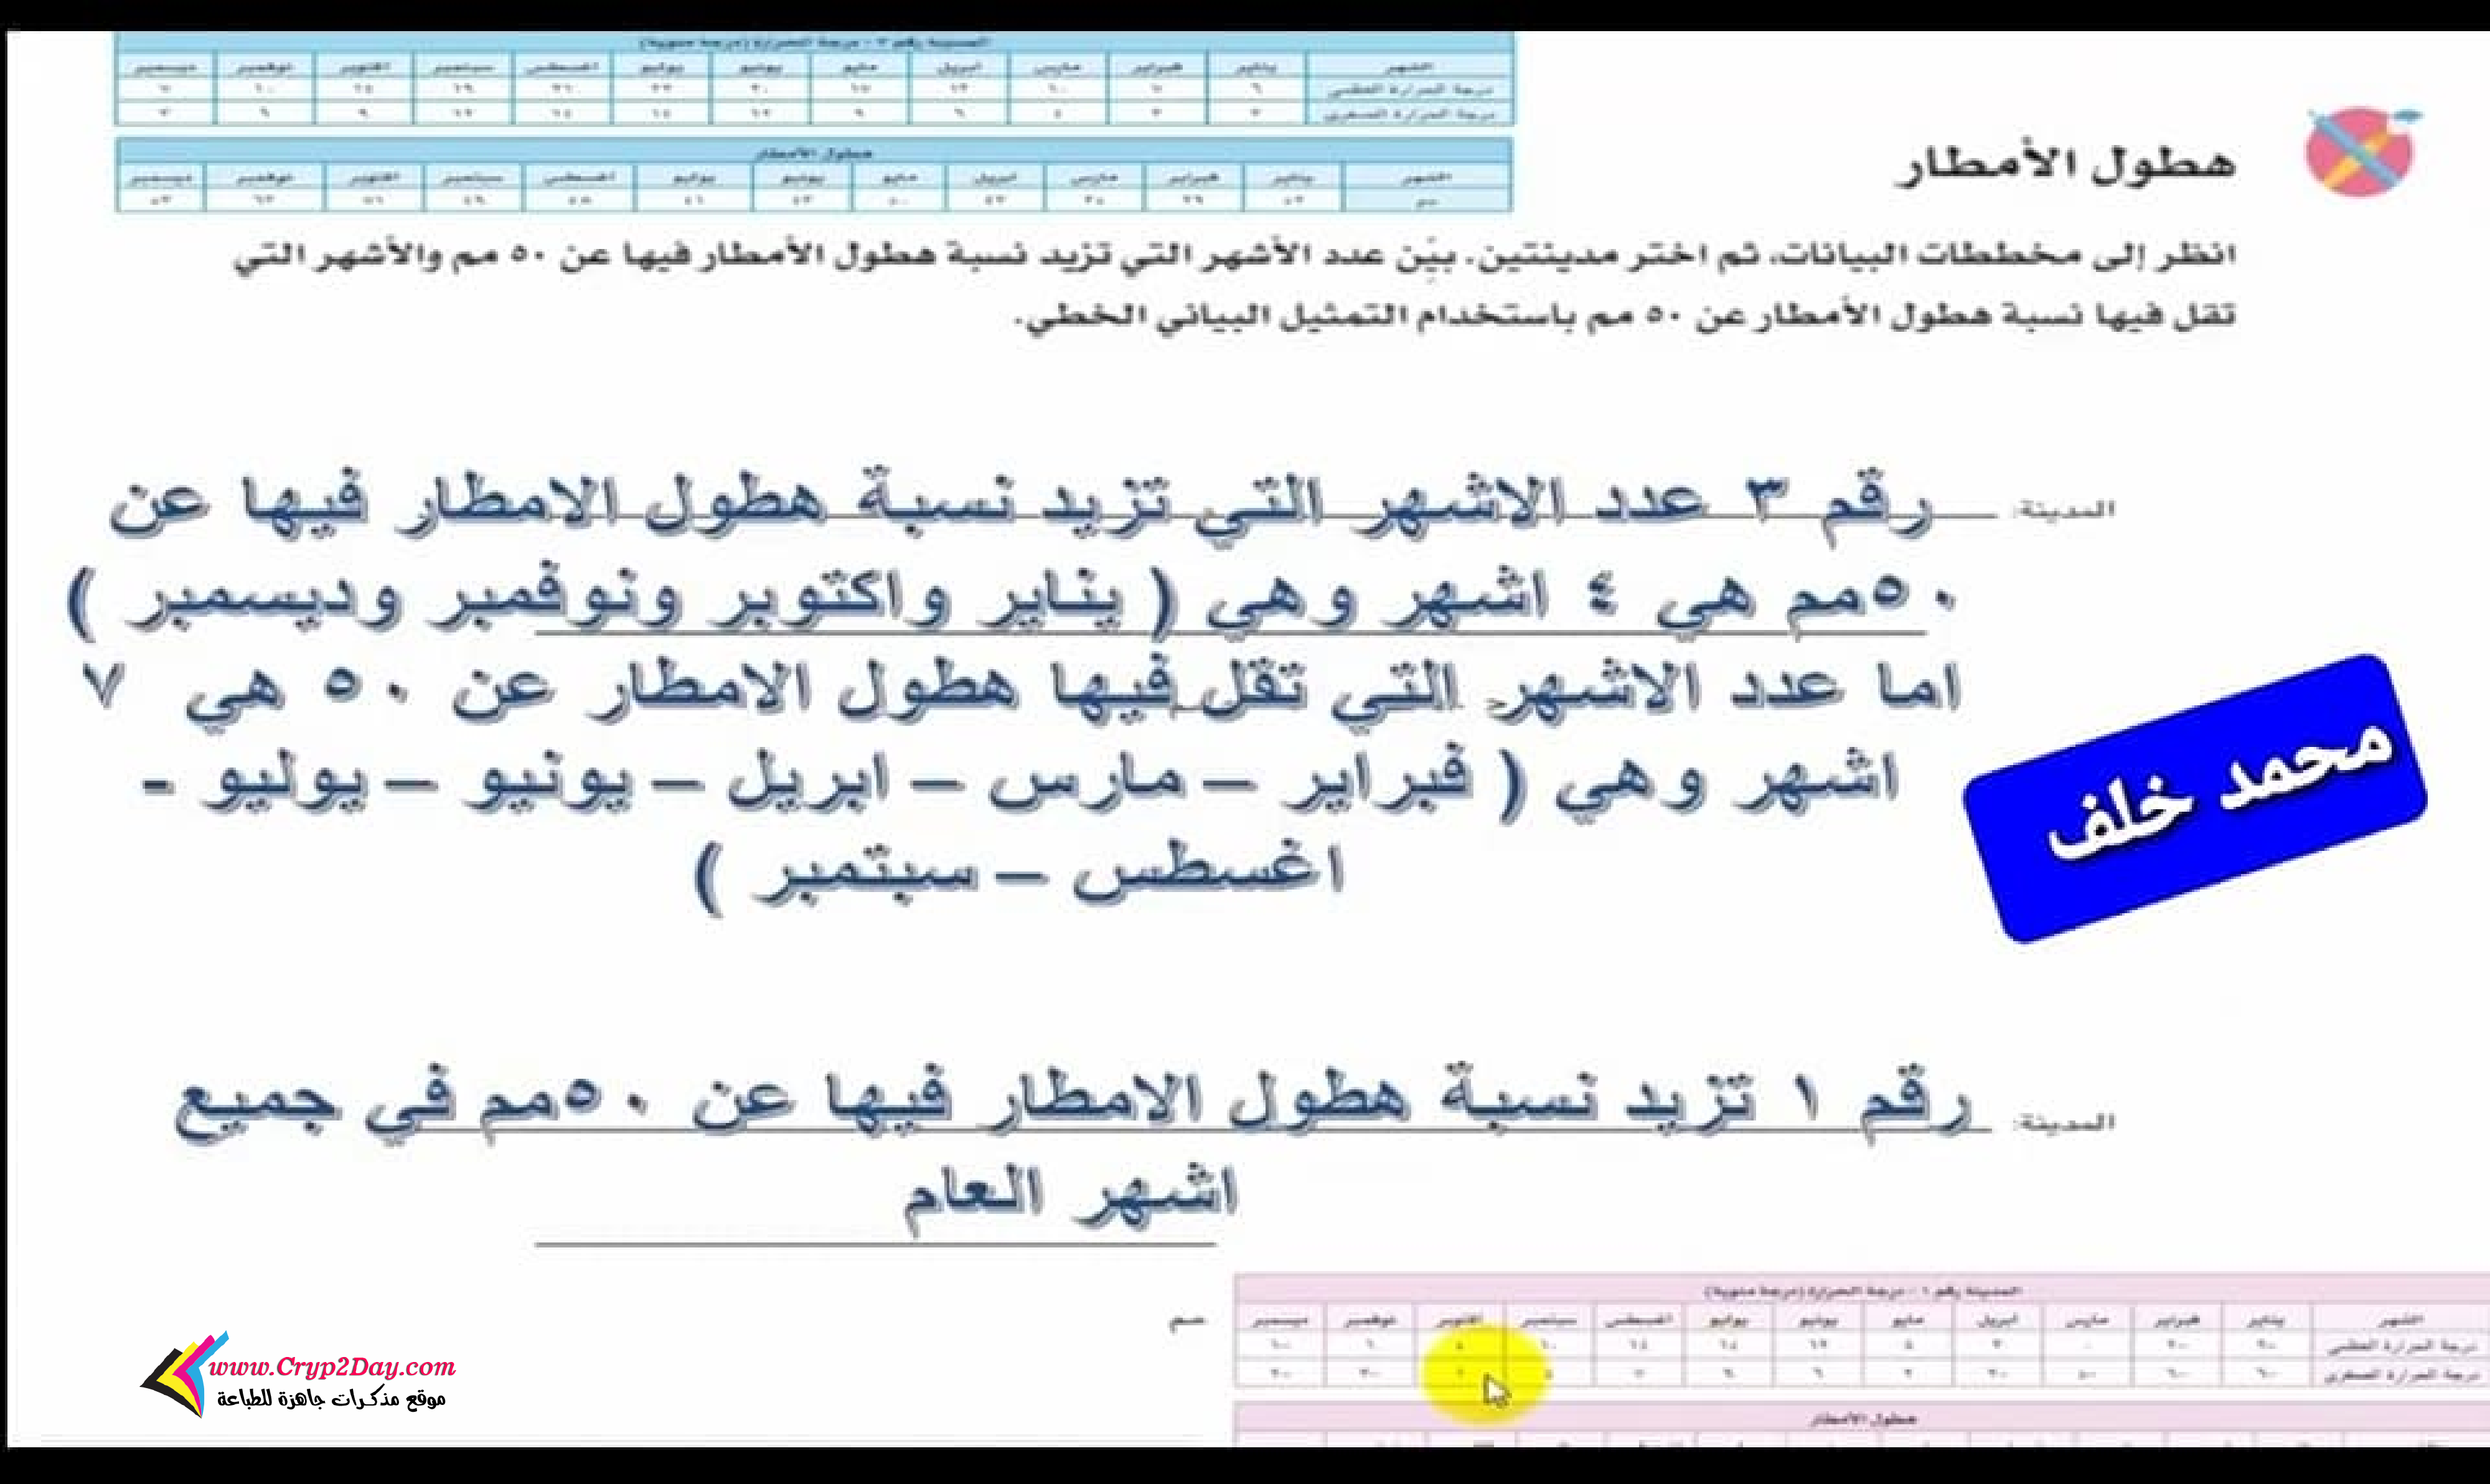 المدينة رقم ٣ - درجة الحرارة (درجة مئوية)
الشهر يناير فبراير مارس ابريل مايو يونيو يوليو اغسطس سبتمبر اكتوبر نوفمبر ديسمبر
درجة الحرارة العظمى
درجة الحرارة الصغرى
هطول الأمطار
الشهر يناير فبراير مارس ابريل مايو يونيو يوليو اغسطس سبتمبر اكتوبر نوفمبر ديسمبر
مم
هطول الأمطار
انظر إلى مخططات البيانات، ثم اختر مدينتين. بيِّن عدد الأشهر التي تزيد نسبة هطول الأمطار فيها عن ٥٠ مم والأشهر التي
تقل فيها نسبة هطول الأمطار عن ٥٠ مم باستخدام التمثيل البياني الخطي.
المدينة: رقم ٣ عدد الاشهر التي تزيد نسبة هطول الامطار فيها عن
٥٠مم هي ٤ اشهر وهي ( يناير واكتوبر ونوفمبر وديسمبر )
اما عدد الاشهر التي تقل فيها هطول الامطار عن ٥٠ هي ٧
اشهر وهي ( فبراير – مارس – ابريل – يونيو – يوليو -
اغسطس – سبتمبر )
محمد خلف
المدينة: رقم ١ تزيد نسبة هطول الامطار فيها عن ٥٠مم في جميع
اشهر العام
المدينة رقم ١ - درجة الحرارة (درجة مئوية)
الشهر يناير فبراير مارس ابريل مايو يونيو يوليو اغسطس سبتمبر اكتوبر نوفمبر ديسمبر
درجة الحرارة العظمى
درجة الحرارة الصغرى
هطول الأمطار
www.Cryp2Day.com
موقع مذكرات جاهزة للطباعة